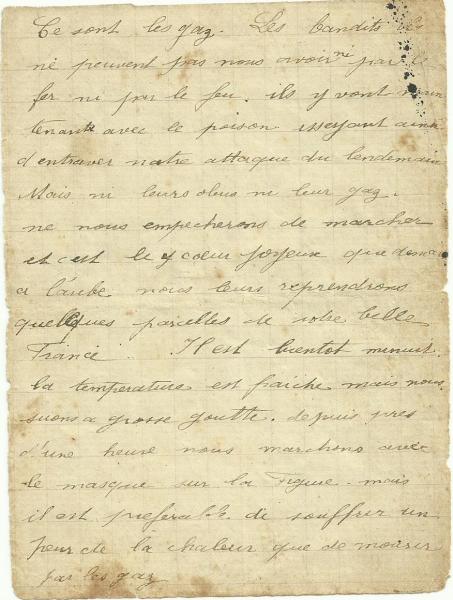 Ce sont les gaz. Les bandits
ne peuvent pas nous avoir ni par le
fer ni par le feu. ils y vont main
tenant avec le poison essayant ainsi
d'entraver notre attaque du lendemain
Mais ni leurs obus ni leur gaz.
ne nous empecherons de marcher
et c'est le coeur joyeux que demain
a l'aube nous leurs reprendrons
quelques parcelles de notre belle
France. Il est bientot minuit.
la temperature est fraiche mais nous
suons a grosse goutte. depuis pres
d'une heure nous marchons avec
le masque sur la figure. mais
il est preferable de souffrir un
peu de la chaleur que de mourir
par les gaz